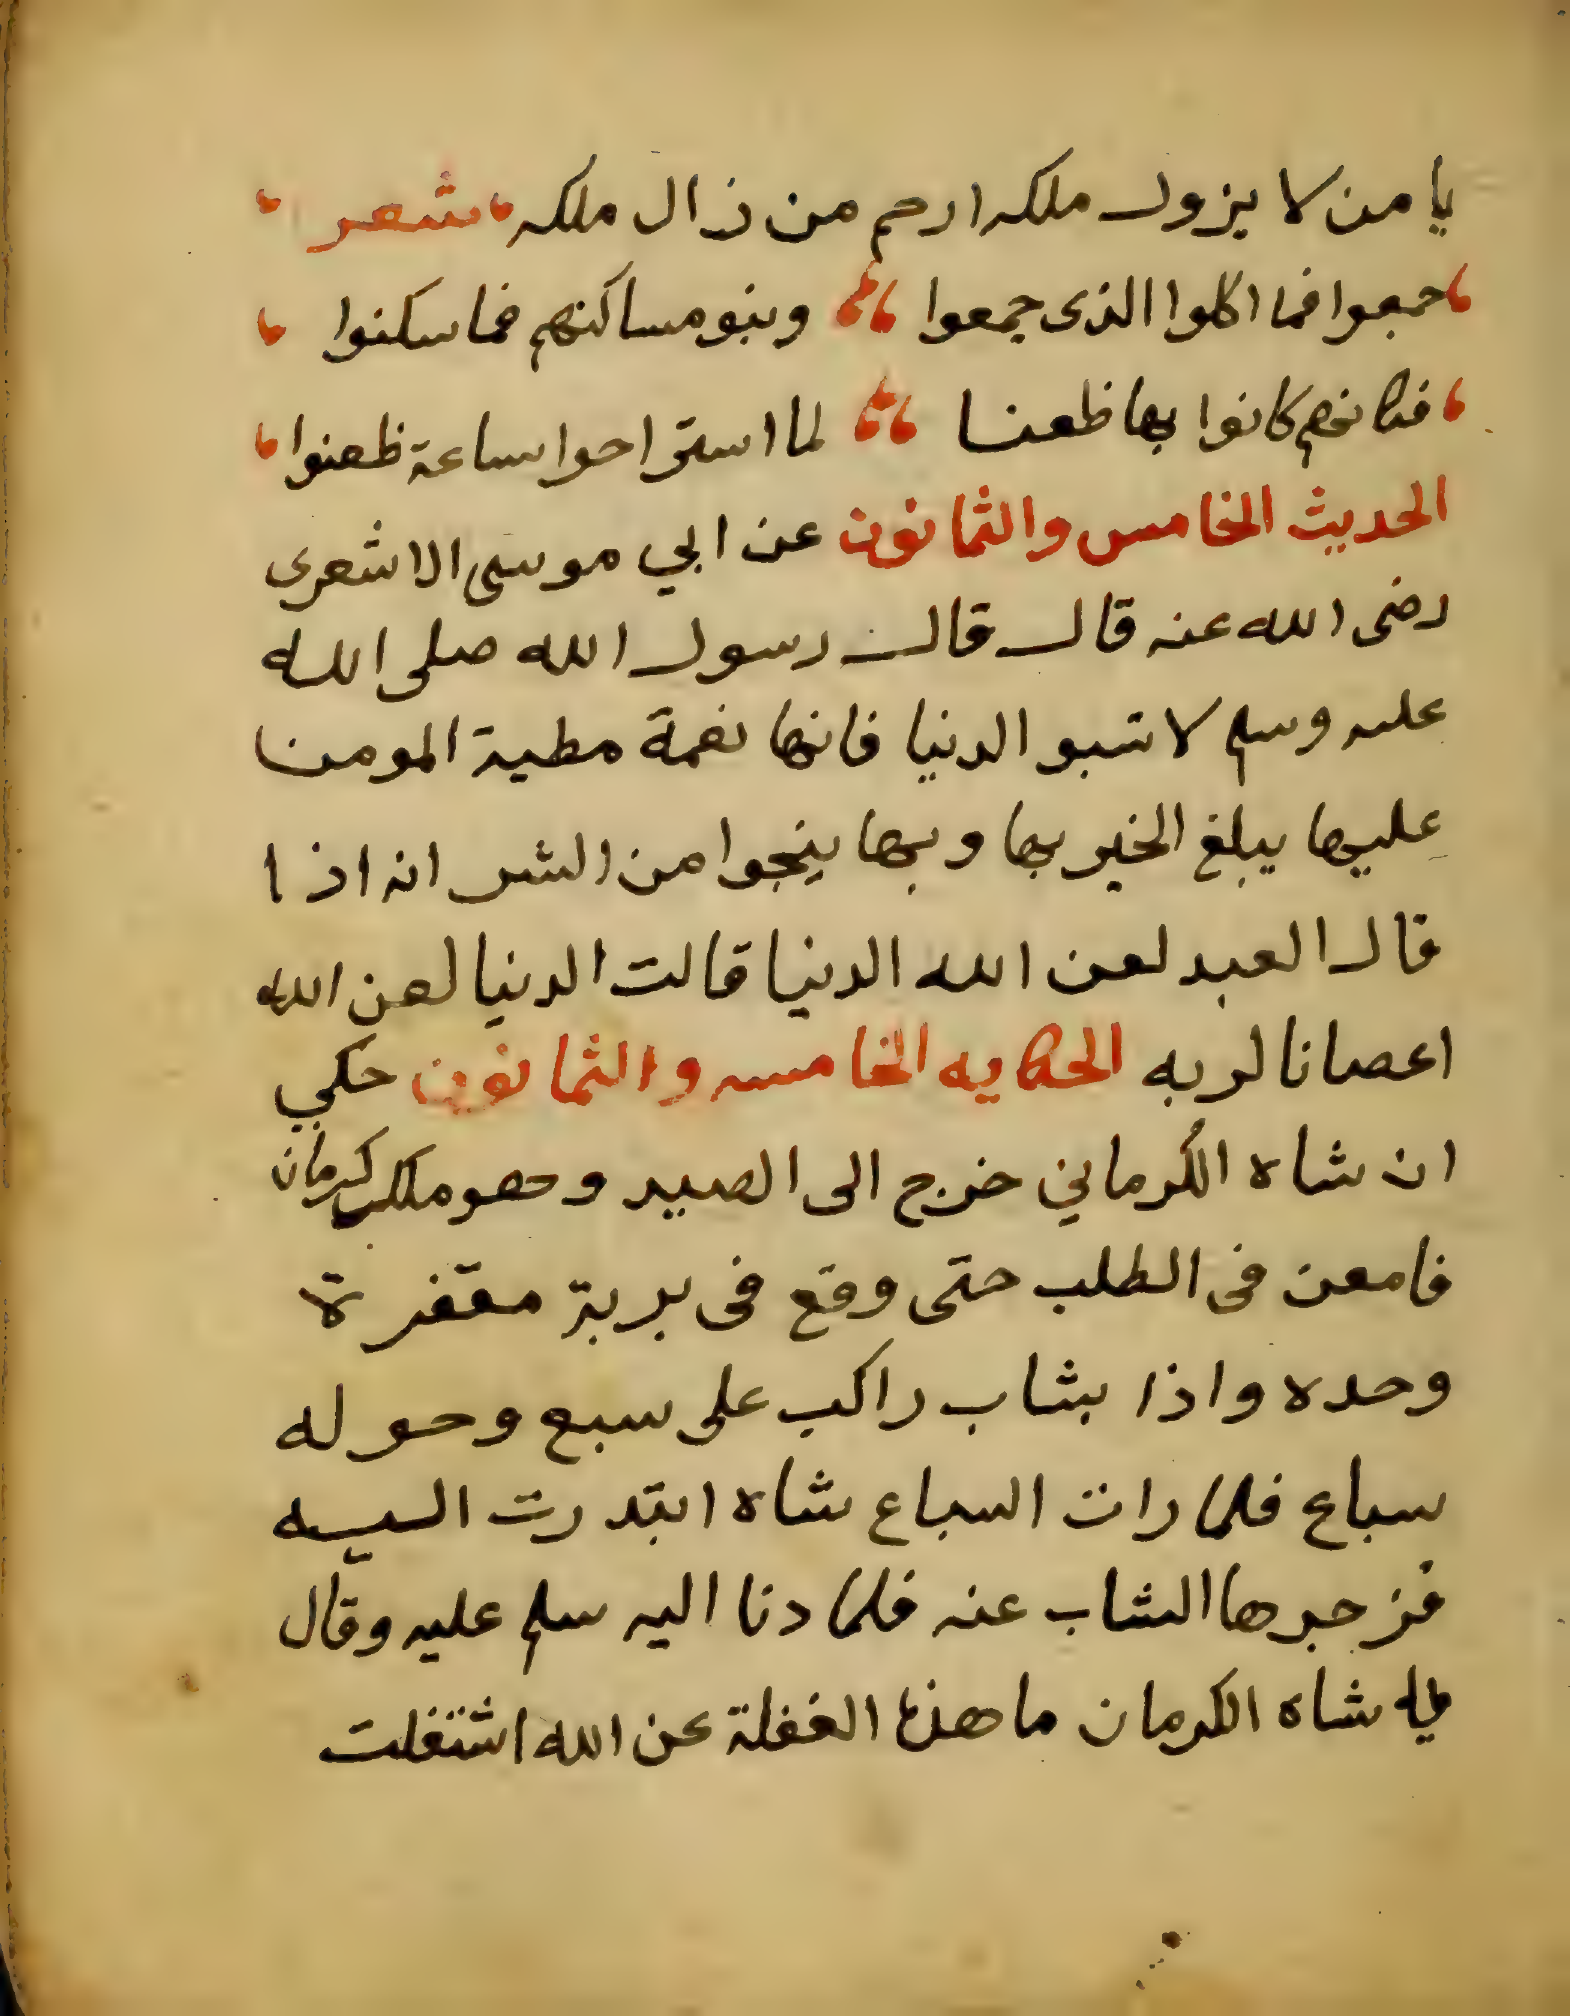 يا من لا يزول ملكه ارحم من زال ملكه شعر
جمعوا فما اكلوا الذى جمعوا وبنو مساكنهم فما سكنوا
فكانهم كانوا بها ظعنا لما استراحوا ساعة ظعنوا
الحديث الخامس والثمانون عن ابي موسى الاشعرى
رضى الله عنه قال قال رسول الله صلى الله
عليه وسلم لا تسبو الدنيا فانها نعمة مطية المومن
عليها يبلغ الخير بها وبها ينجوا من الشر انه اذا
قال العبد لعن الله الدنيا قالت الدنيا لعن الله
اعصانا لربه الحكايه الخامسه والثمانون حكي
ان شاه الكرماني خرج الى الصيد وهو ملك كرمان
فامعن فى الطلب حتى وقع فى برية مقفرة
وحده واذا بشاب راكب على سبع وحوله
سباع فلما رات السباع شاه ابتدرت اليه
فزجرها الشاب عنه فلما دنا اليه سلم عليه وقال
يا شاه الكرمان ما هذه الغفلة عن الله اشتغلت